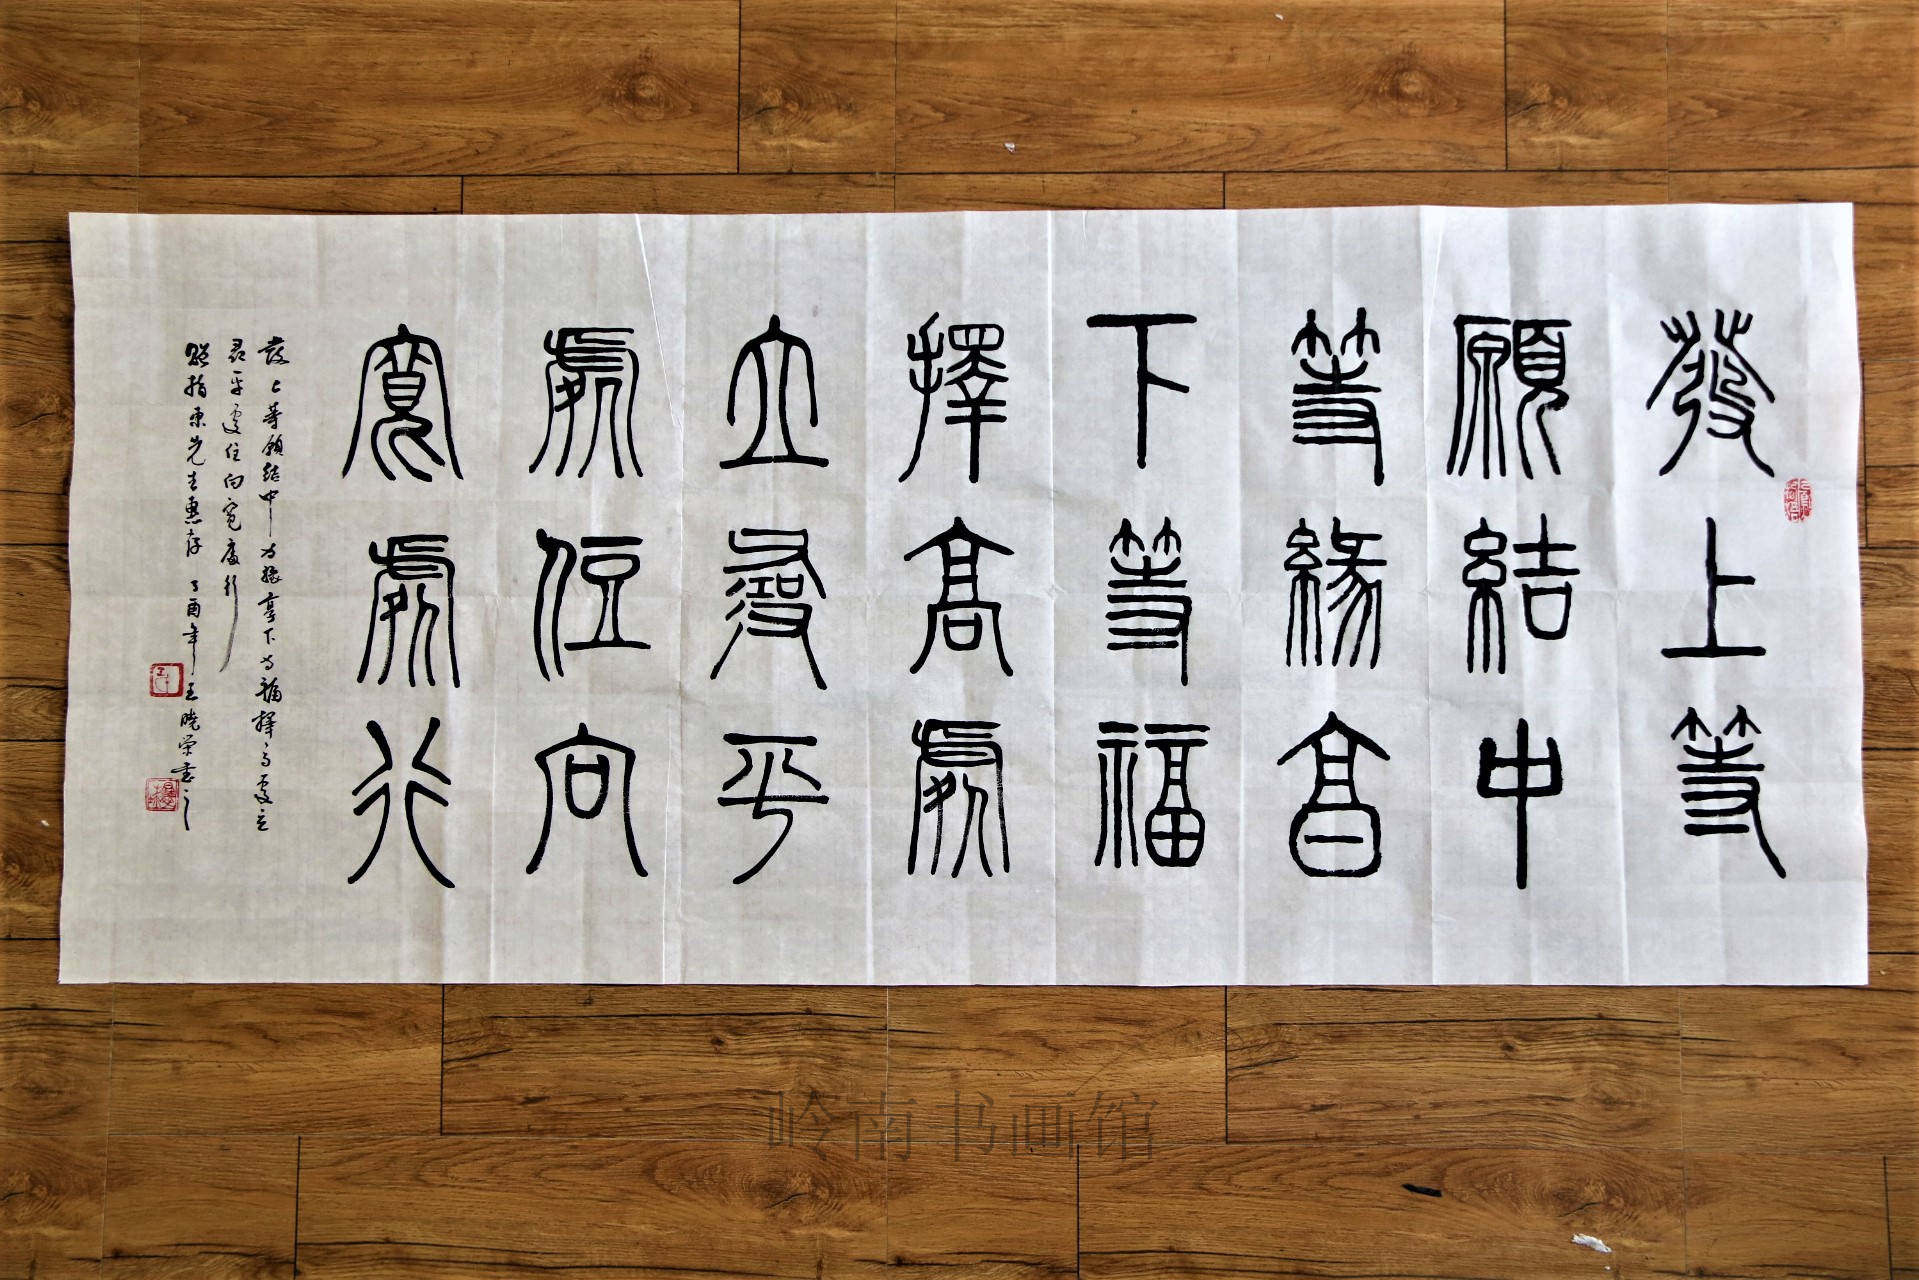 發上等
願結中
等緣享
下等福
擇高處
立尋平
處住向
寬處行
發上等願結中等緣享下等福擇高處立
尋平處住向寬處行
先生惠存 丁酉年 王曉榮書
岭南书画馆